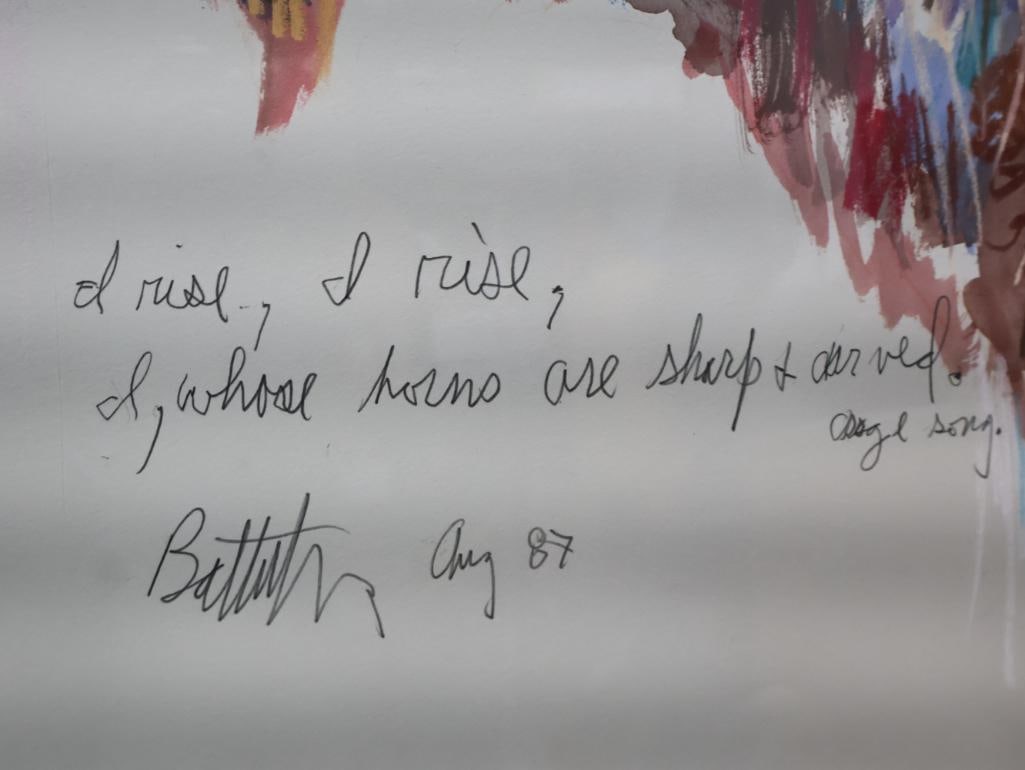 I rise, I rise,
I, whose horns are sharp & curved.
osage song.
Aug 87